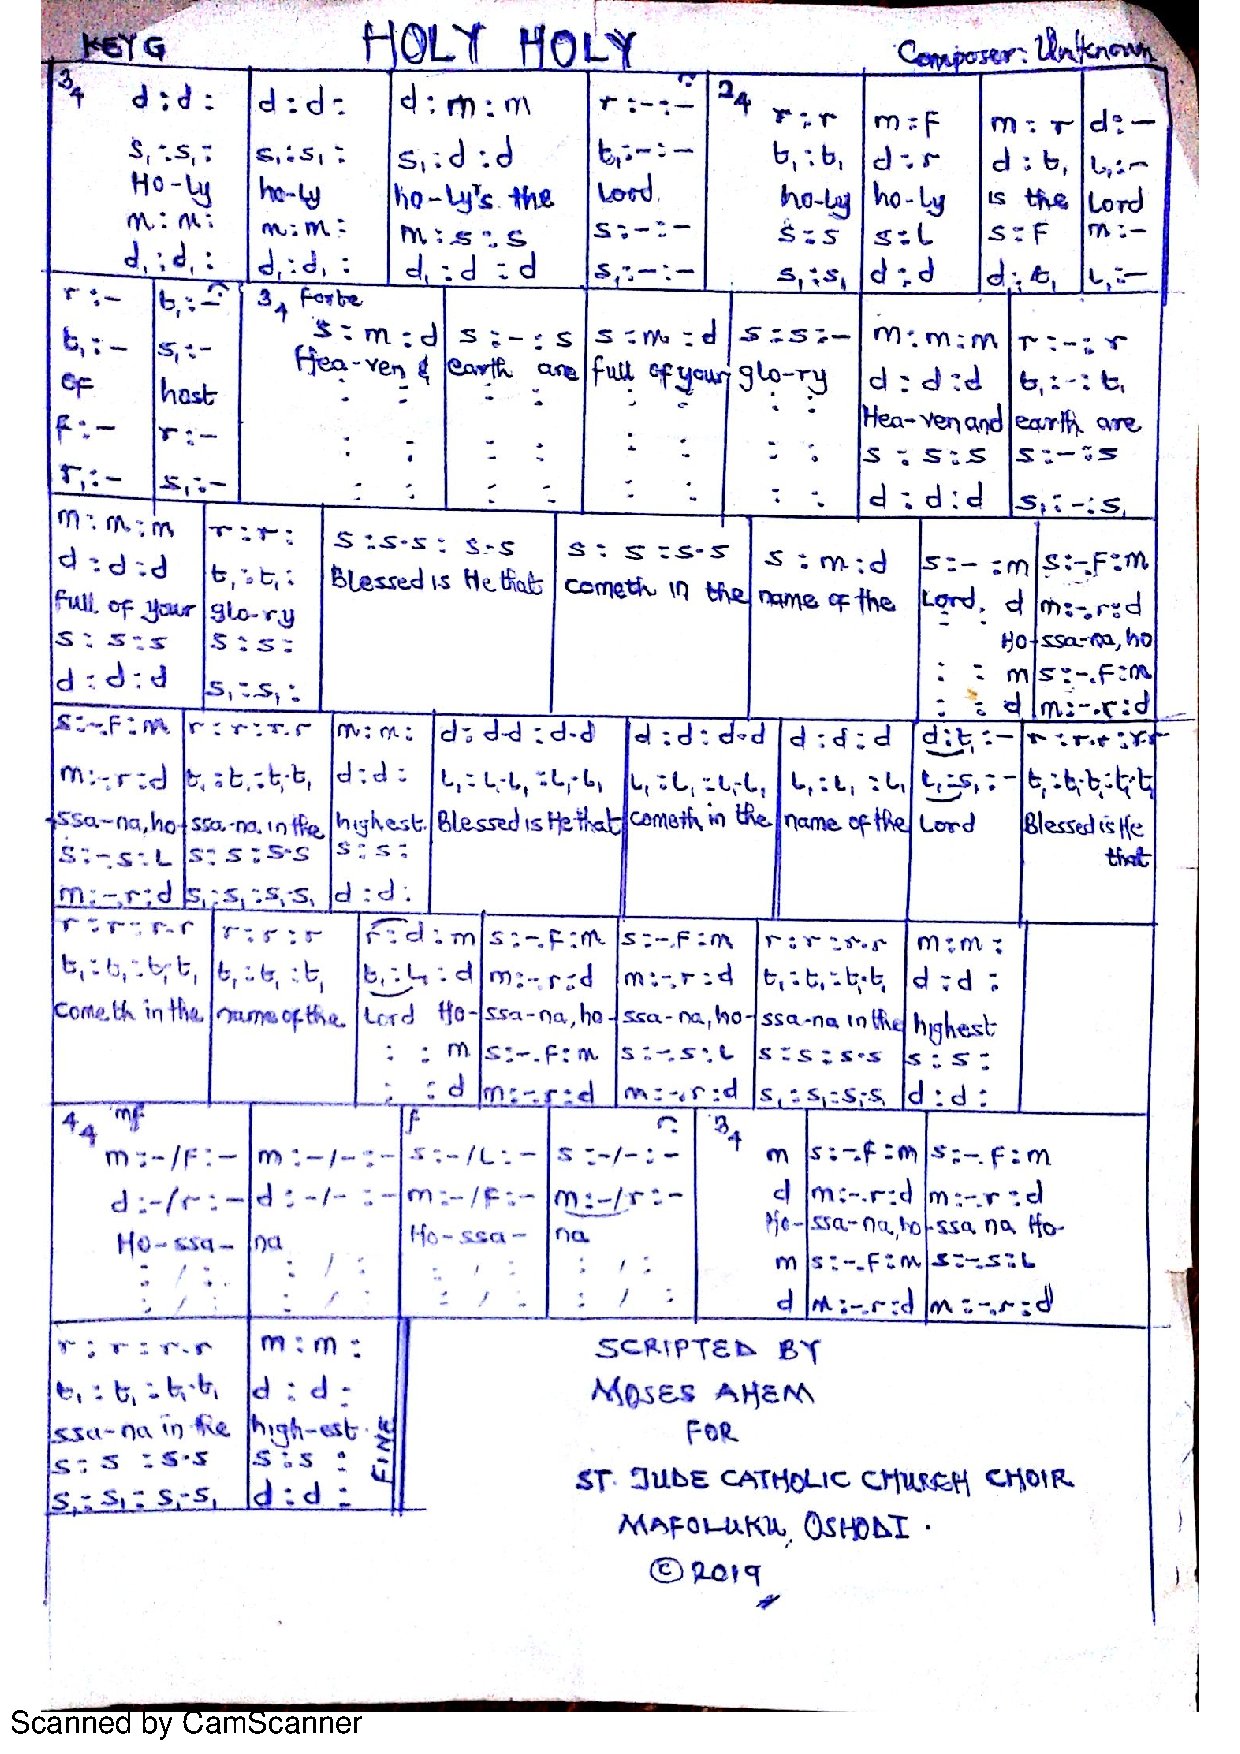 KEY G HOLY HOLY Composer: Unknown
3/4 d:d: | d:d: | d:m:m | r:-:- | 2/4 r:r | m:f | m:r | d:-
s₁:s₁: | s₁:s₁: | s₁:d:d | t₁:-:- | t₁:t₁ | d:r | d:t₁ | l₁:-
Ho-ly | ho-ly | ho-ly's the | Lord. | ho-ly | ho-ly | is the | Lord
m:m: | m:m: | m:s:s | s:-:- | s:s | s:L | s:f | m:-
d₁:d₁: | d₁:d₁: | d₁:d:d | s₁:-:- | s₁:s₁ | d:d | d:t₁ | l₁:-
r:- | t₁:- | 3/4 forte s:m:d | s:-:s | s:m:d | s:s:- | m:m:m | r:-:r
t₁:- | s₁:- | Hea-ven & | earth are | full of your | glo-ry | d:d:d | t₁:-:t₁
of | host | : : | : : | : : | : : | Hea-ven and | earth are
f:- | r:- | : : | : : | : : | : : | s:s:s | s:-:s
r₁:- | s₁:- | : : | : : | : : | : : | d:d:d | s₁:-:s₁
m:m:m | r:r: | s:s.s:s.s | s:s:s.s | s:m:d | s:-:m | s:-.f:m
d:d:d | t₁:t₁: | Blessed is He that | cometh in the | name of the | Lord. d | m:-.r:d
full of your | glo-ry | Ho- | ssa-na, ho
s:s:s | s:s: | : : m | s:-.f:m
d:d:d | s₁:s₁: | : : d | m:-.r:d
s:-.f:m | r:r:r.r | m:m: | d:d.d:d.d | d:d:d.d | d:d:d | d:t₁:- | r:r.r:r.r
m:-.r:d | t₁:t₁:t₁.t₁ | d:d: | l₁:l₁.l₁:l₁.l₁ | l₁:l₁:l₁.l₁ | l₁:l₁:l₁ | l₁:s₁:- | t₁:t₁.t₁:t₁.t₁
ssa-na, ho- | ssa-na in the | highest. | Blessed is He that | cometh in the | name of the | Lord | Blessed is He that
s:-.s:L | s:s:s.s | s:s:
m:-.r:d | s₁:s₁:s₁.s₁ | d:d:
r:r:r.r | r:r:r | r:d:m | s:-.f:m | s:-.f:m | r:r:r.r | m:m:
t₁:t₁:t₁.t₁ | t₁:t₁:t₁ | t₁:l₁:d | m:-.r:d | m:-.r:d | t₁:t₁:t₁.t₁ | d:d:
cometh in the | name of the | Lord Ho- | ssa-na, ho- | ssa-na, ho- | ssa-na in the | highest
: : m | s:-.f:m | s:-.s:L | s:s:s.s | s:s:
: : d | m:-.r:d | m:-.r:d | s₁:s₁:s₁.s₁ | d:d:
4/4 mf f 3/4
m:-/f:- | m:-/-:- | s:-/L:- | s:-/-:- | m | s:-.f:m | s:-.f:m
d:-/r:- | d:-/-:- | m:-/f:- | m:-/r:- | d | m:-.r:d | m:-.r:d
Ho-ssa- | na | Ho-ssa- | na | Ho- | ssa-na, ho | -ssa na Ho-
: / : | : / : | : / : | : / : | m | s:-.f:m | s:-.s:L
: / : | : / : | : / : | : / : | d | m:-.r:d | m:-.r:d
r:r:r.r | m:m:
t₁:t₁:t₁.t₁ | d:d:
ssa-na in the | high-est.
s:s:s.s | s:s:
s₁:s₁:s₁.s₁ | d:d:
FINE
SCRIPTED BY
MOSES AHEM
FOR
ST. JUDE CATHOLIC CHURCH CHOIR
MAFOLUKU, OSHODI.
© 2019
Scanned by CamScanner